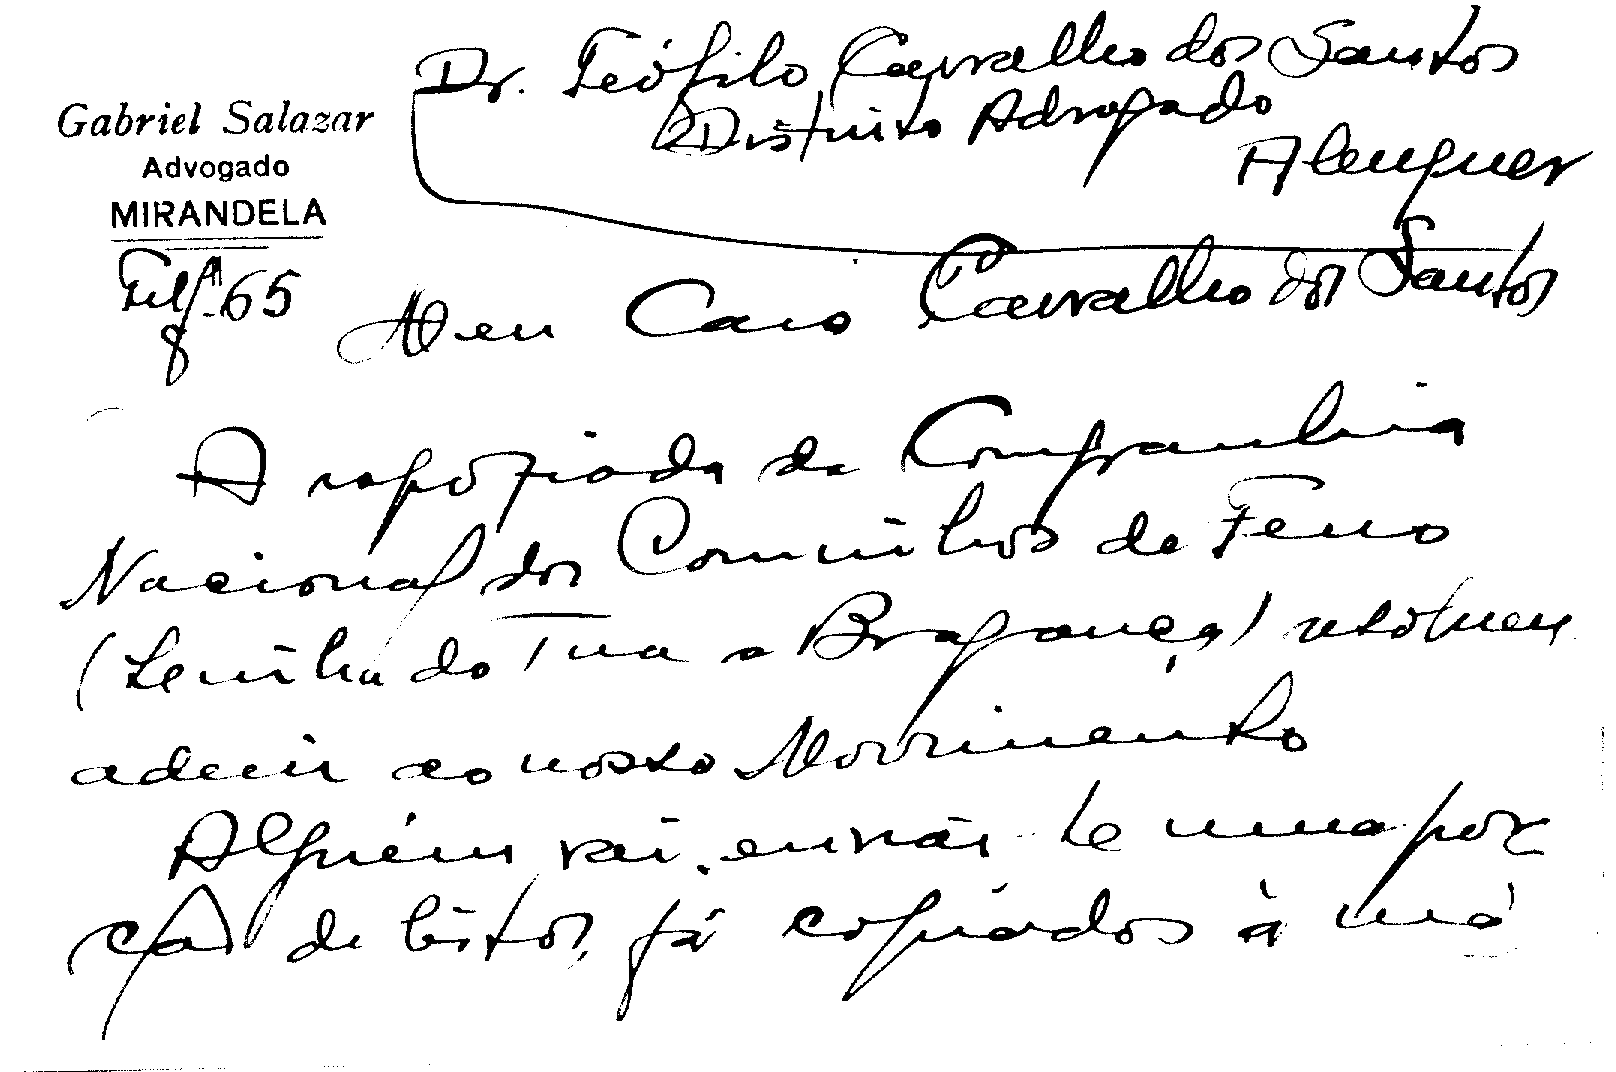 Gabriel Salazar
Advogado
MIRANDELA
Telf. 65
Dr. Teófilo Carvalho dos Santos
Distinto Advogado
Alenquer
Meu Caro Carvalho dos Santos
A rapaziada da Companhia
Nacional dos Caminhos de Ferro
(Linha do Tua a Bragança) resolveu
aderir ao nosso Movimento
Alguém vai enviar-te uma por
ção de listas, já copiadas à má